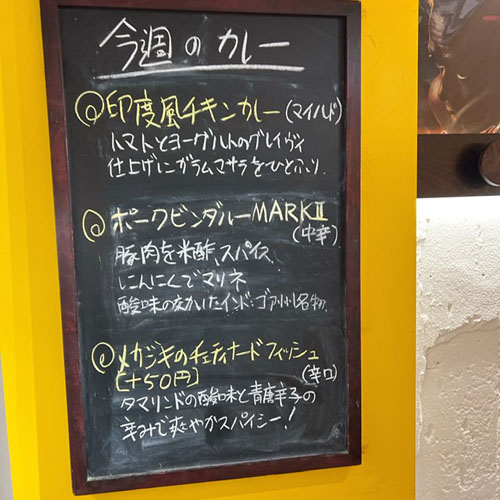 今週のカレー
@印度風チキンカレー(マイルド)
トマトとヨーグルトのグレイヴィ
仕上げにガラムマサラをひとふり.
@ポークビンダルーMARKⅡ
(中辛)
豚肉を米酢、スパイス、
にんにくでマリネ
酸味の効いたインド・ゴア州名物.
@メカジキのチェティナードフィッシュ
[+50円]
(辛口)
タマリンドの酸味と青唐辛子の
辛みで爽やかスパイシー!